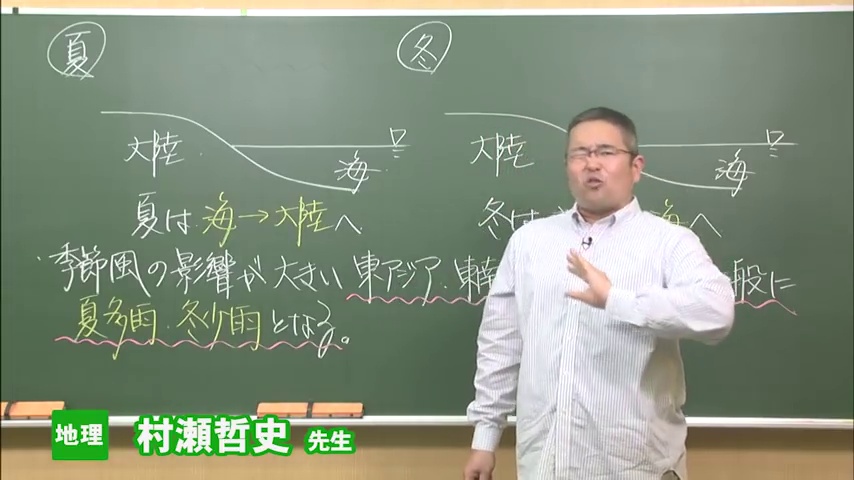 夏
冬
大陸
海
大陸
海
夏は 海→大陸へ
冬は 海へ
・季節風の影響が大きい 東アジア・東南 般に
夏多雨・冬少雨となる。
地理 村瀬哲史 先生